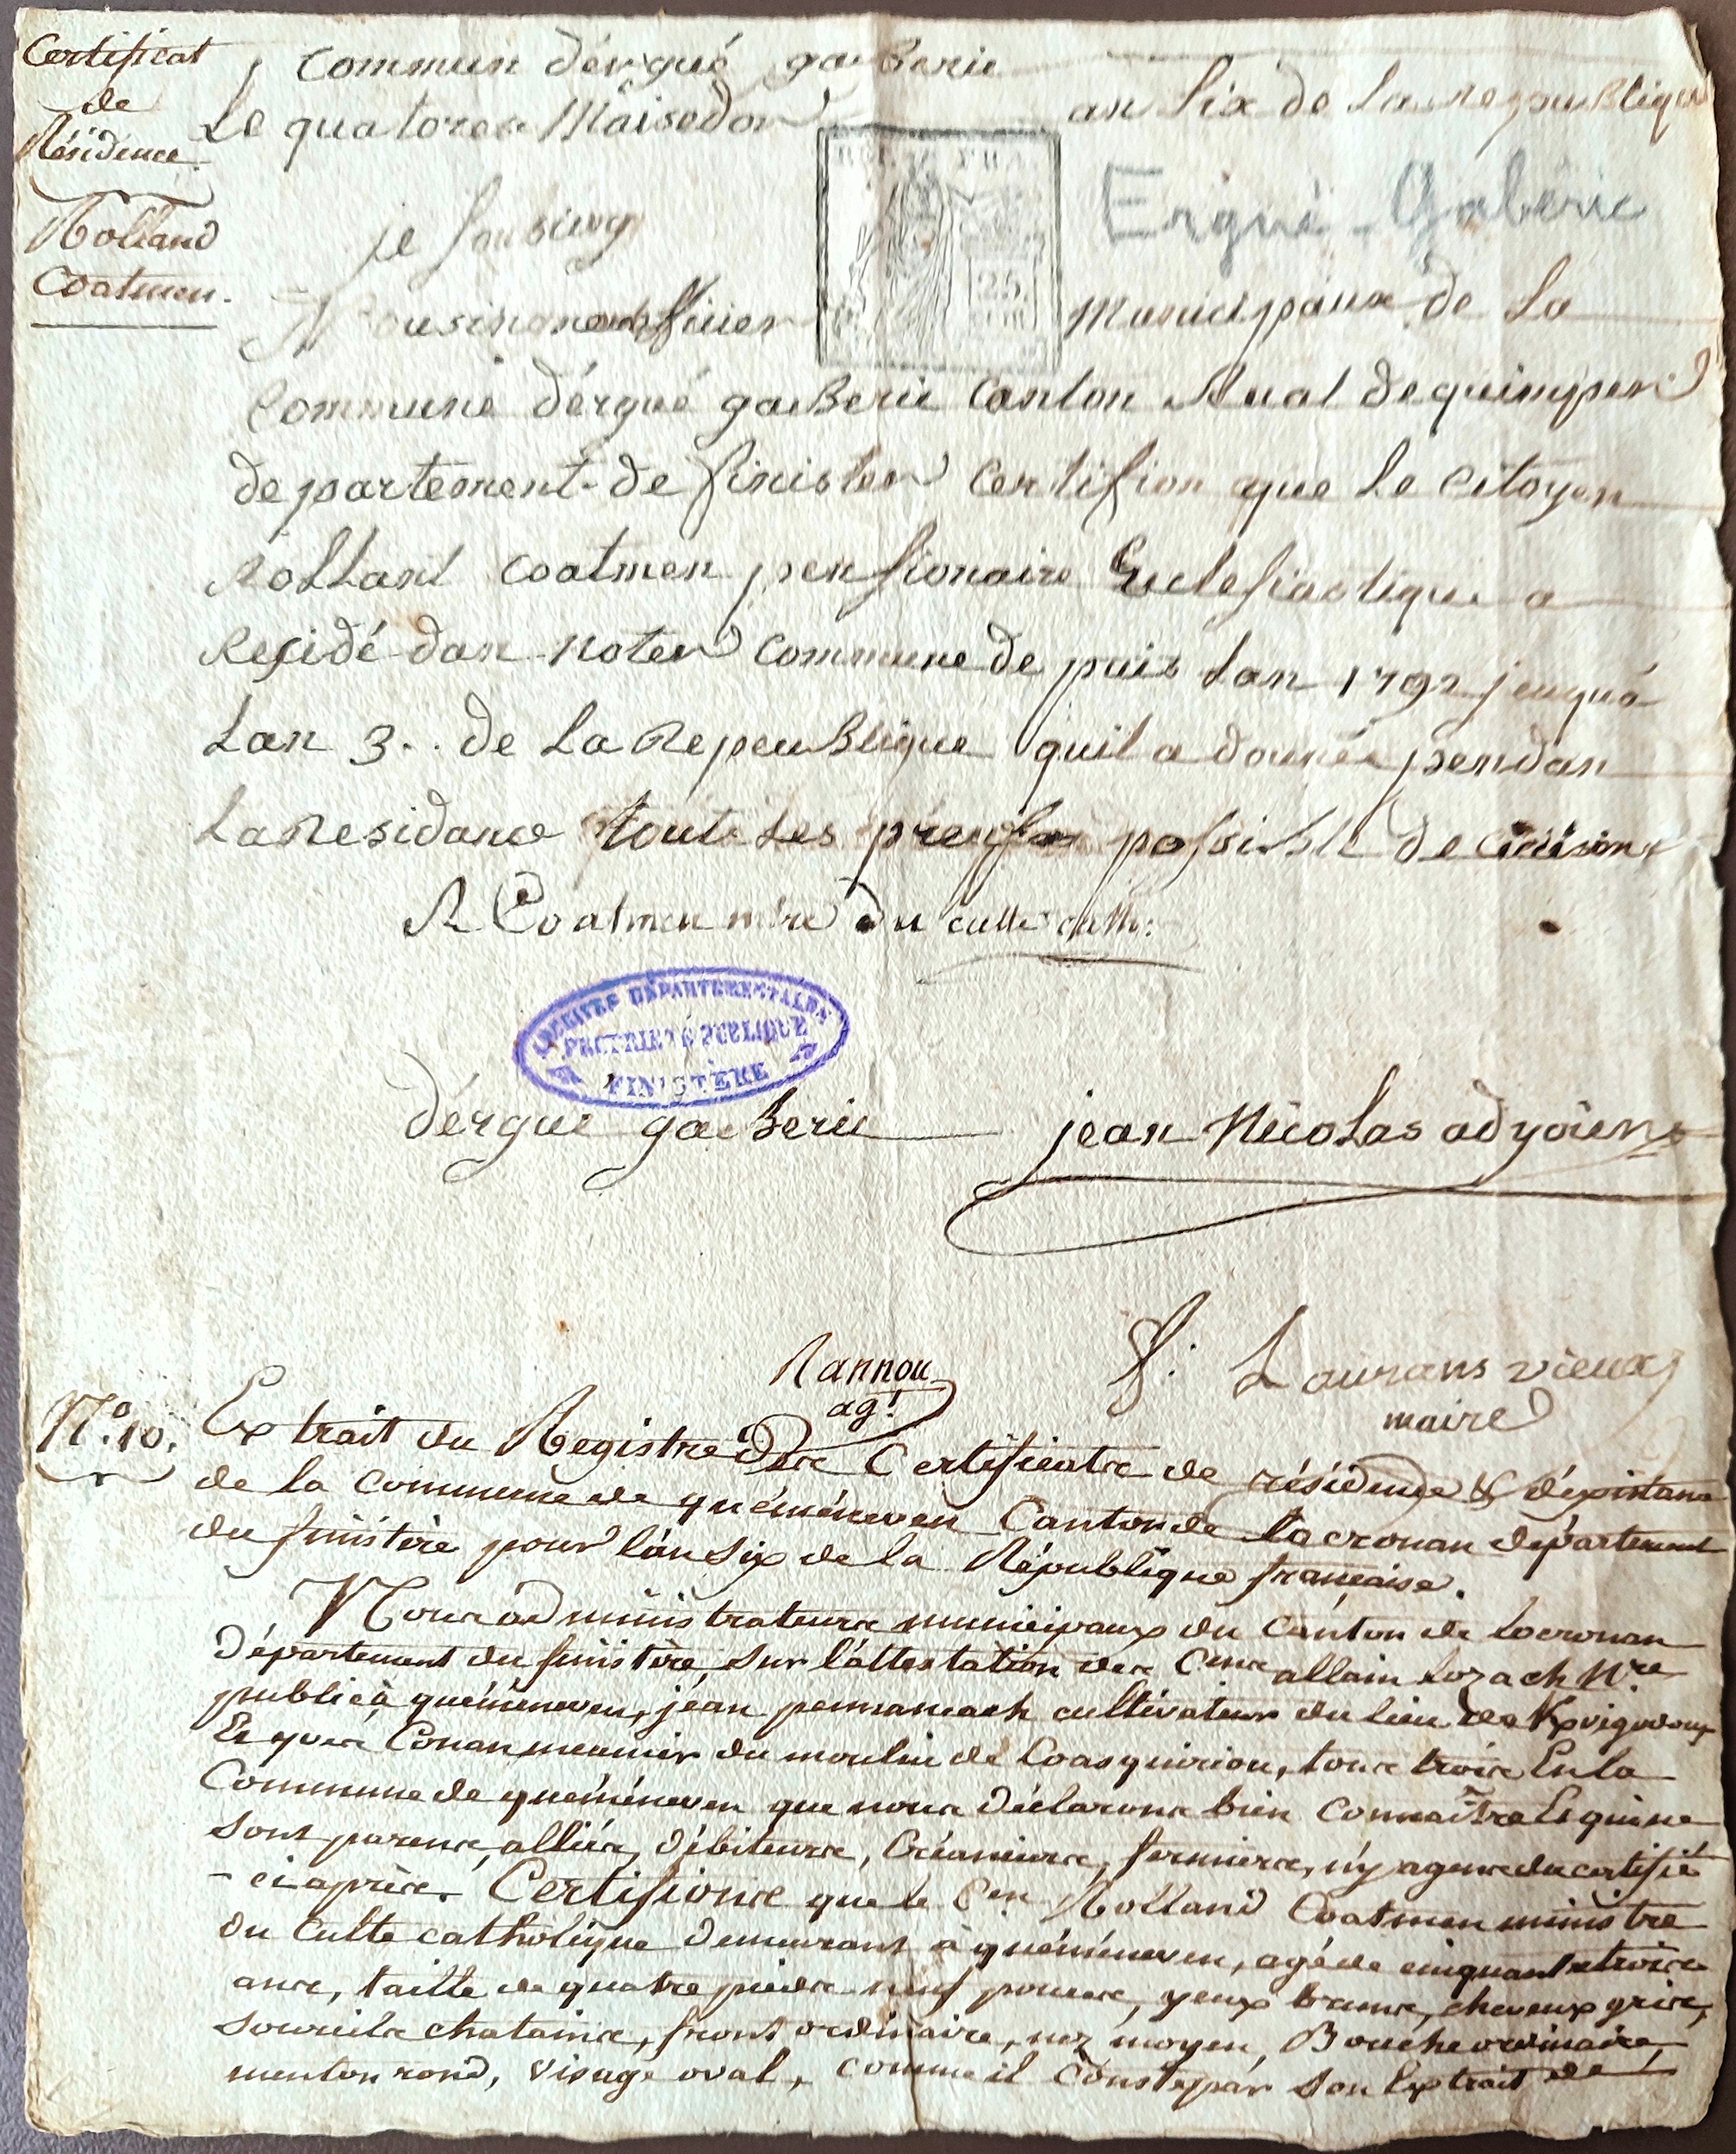 Certificat
de
Résidence.
Rolland
Coatmen.
Commun dérgué gaiberie
Le quatorce Maisedor an Six de La republique
REP. FRA.
25
Ergué-Gabéric
je Soub
Municipaux de La
Commune dérgué gaiberie Canton Rual de quimper
departement de finister Certifion que Le Citoyen
Rollant Coatmen pensionaire Eclesiastique a
Residé dan noter Commune de puis Lan 1792 jeuqua
Lan 3.. de La Repeublique quil a donnée pendan
La Residance toute Les preufes possible de
R Coatmen m.tre du culte cath:
ARCHIVES DÉPARTEMENTALES
PROPRIÉTÉ PUBLIQUE
FINISTÈRE
dérgué gaiberie jean Nicolas adyoient
Rannou
agt
f: Laurans vieux
maire
N.o 10.
Extrait du Registre Des Certificats de résidence & d'éxistance
de la Commune de quéménéven Canton de Locronan département
du finistère pour l'an Six de la République française.
Nous administrateurs municipaux du Canton de Locronan
Département du finistère, Sur l'attestation des C.ens allain Lozach N.re
public à quéménéven, jéan pennanéach cultivateur du lieu de Kvigodoux
Et yves Conan meunier du moulin de Coasquiriou, tous trois En la
Commune de quéménéven que nous déclarons bien Connaître Et qui ne
Sont parens, alliés, débiteurs, Créanciers, fermiers, ny agens du certifié
- ci après. Certifions que le C.en Rolland Coatmen ministre
du Culte catholique demeurant à quéménéven, agé de cinquante trois
ans, taille de quatre pieds neuf pouces, yeux bruns, cheveux gris,
Sourcils chatains, front ordinaire, nez moyen, Bouche ordinaire,
menton rond, visage oval, Comme il Conste par Son Extrait de